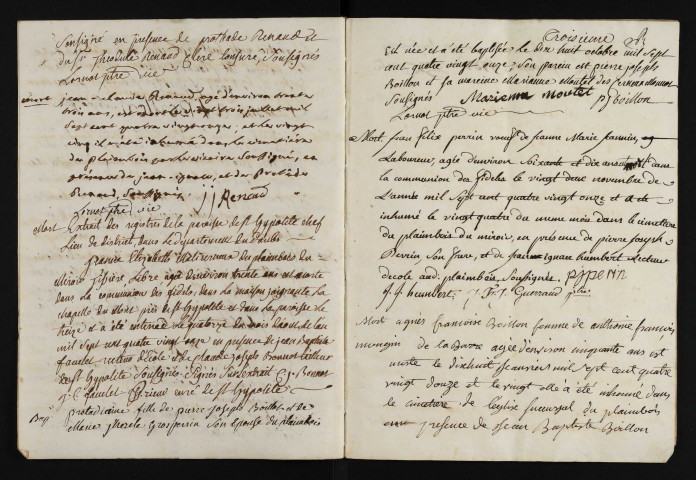 Soussigné en presence de prothade Renaud et
du Sr theodule Renaud clerc tonsuré, Soussignés
Lornot ptre vic
mort jean claude Renaud agé denviron trente
trois ans, est mort le vingt trois juillet mil
Sept cent quatre vingt onze, et le vingt
cinq il a été inhumé dans le cimetiere
du plaimbois par le vicaire Soussigné, en
presence de jean et de prothade
Renaud Soussignés JJ Renaud
Lornot ptre vic
Mort Extrait des registres de la paroisse de st hypolite chef
Lieu de district, dans le Departement du Doubs
france Elizabeth du plaimbois du
miroir fille, Libre agée denviron trente ans est morte
dans la communion des fideles, dans la maison joignante La
chapelle du mode près de st hypolite et dans La paroisse de
et a été enterrée le quatorze du mois daout de lan
mil sept cent quatre vingt onze en presence de jean Baptiste
faudel recteur décole et de claude joseph Bonnot tailleur
de st hypolite Soussignés Signés sur Lextrait C.j. Bonnot
j.C. faudel prieur curé de st hypolite
Bap prothadienne fille de pierre joseph Boillon et de
Marie therese Grosperrin Son épouse du plaimbois
Troisieme
Est née et a été baptisée le dix huit octobre mil sept
cent quatre vingt onze, Son parein est pierre joseph
Boillon et sa mareine marianne moutet
Soussignés Marienne Moutet pj Boillon
Lornot ptre vic
Mort. fran felix perrin veuf de jeanne Marie jeannin,
Laboureur, agé denviron Soixante et dix ans est mort dans
la communion des fideles le vingt deux novembre de
Lannée mil Sept cent quatre vingt onze et a été
inhumé le vingt quatre du meme mois dans le cimetiere
du plaimbois du miroir, en presence de pierre joseph
Perrin, son frere, et de fran ignace humbert recteur
decole aud. plaimbois, Soussignés, PJ PERIN
f. j. heumbert F. J. Guerraud ptre
Mort agnès francoise Boillon femme de anthoine françois
mougin de la Baroz agée d'environ cinquante ans est
morte le dixhuit Janvier mil sept cent quatre
vingt douze et le vingt elle a été inhumée dans
le cimetiere de l'eglise succursal du plaimbois
en presence de Jean Baptiste Boillon